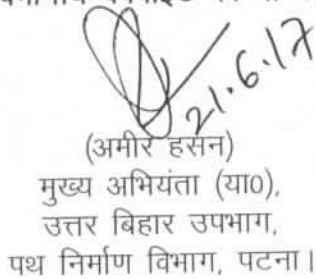 21.6.17
(अमीर हसन)
मुख्य अभियंता (या0),
उत्तर बिहार उपभाग,
पथ निर्माण विभाग, पटना।